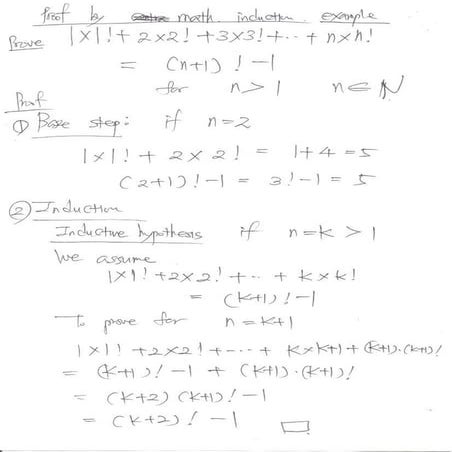 Proof by math induction example
Prove 1×1! + 2×2! + 3×3! + ·· + n×n!
= (n+1)! -1
for n>1 n∈N
Proof
① Base step: if n=2
1×1! + 2×2! = 1+4 =5
(2+1)! -1 = 3! -1 = 5
② Induction
Inductive hypothesis if n=k >1
We assume
1×1! +2×2! + ·· + k×k!
= (k+1)! -1
To prove for n=k+1
1×1! +2×2! +---+ k×k+1 + (k+1)·(k+1)!
= (k+1)! -1 + (k+1)·(k+1)!
= (k+2) (k+1)! -1
= (k+2)! -1 □